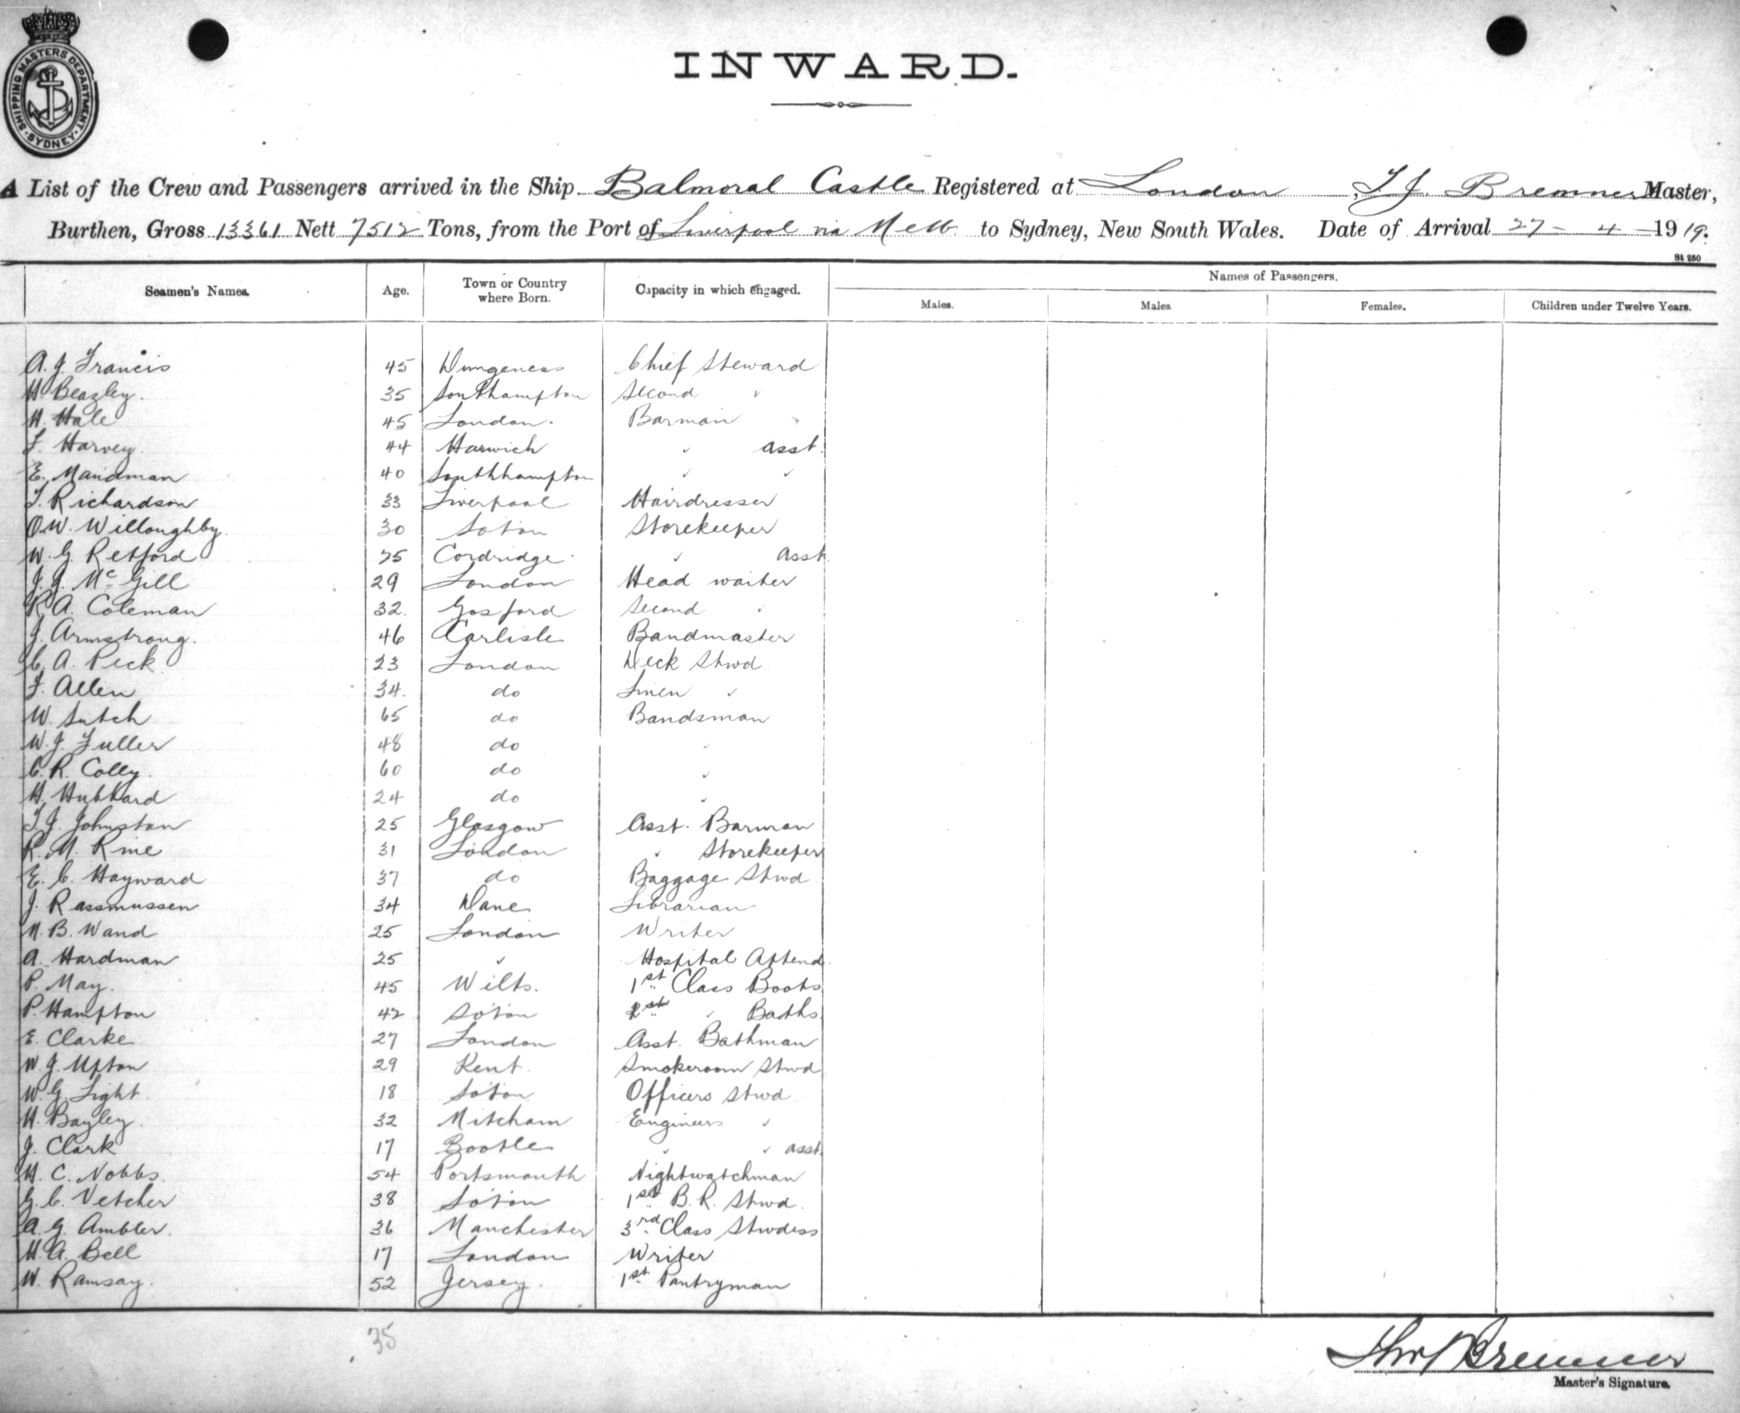 SHIPPING MASTERS DEPARTMENT · SYDNEY ·
INWARD.
A List of the Crew and Passengers arrived in the Ship Balmoral Castle Registered at London, T J. Bremner Master,
Burthen, Gross 13361 Nett 7512 Tons, from the Port of Liverpool via Melb. to Sydney, New South Wales. Date of Arrival 27 - 4 - 1919.
St 250
Seamen's Names. Age. Town or Country where Born. Capacity in which engaged. Names of Passengers.
Males. Males Females. Children under Twelve Years.
A. J. Francis 45 Dungeness Chief Steward
H Beazley. 35 Southampton Second "
H. Hale 45 London. Barman
F. Harvey 44 Harwich " asst.
E. Maidman 40 Southhampton " "
T. Richardson 33 Liverpool Hairdresser
O.W. Willoughby. 30 Soton Storekeeper
W. G. Retford 25 Cordridge. " Asst
J. J. McGill 29 London Head waiter
R A. Coleman 32. Gosford Second "
J. Armstrong. 46 Carlisle Bandmaster
C. A. Peck 23 London Deck Stwd
F. Allen 34. do Linen "
W. Sutch 65 do Bandsman
W. J. Fuller 48 do "
C. R. Colly. 60 do "
H. Hubbard 24 do "
T. J. Johnston 25 Glasgow Asst. Barman
R. M. Rine 31 London " Storekeeper
E. C. Hayward 37 do Baggage Stwd
J. Rasmussen 34 Dane Librarian
N. B. Wand 25 London Writer
A. Hardman 25 " Hospital Attend.
P. May. 45 Wilts. 1st Class Boots
P. Hampton 42 Soton " Baths
E. Clarke 27 London Asst. Bathman
W. J. Upton 29 Kent. Smokeroom Stwd
W. G. Light. 18 Soton Officers Stwd.
H. Bayley. 32 Mitcham Engineers "
J. Clark 17 Bootle " " asst.
H. C. Nobbs. 54 Portsmouth Nightwatchman
G. C. Vetcher 38 Soton 1st B. R. Stwd.
A. G. Ambler. 36 Manchester 3rd Class Stwdess
H. A. Bell 17 London Writer
W. Ramsay. 52 Jersey. 1st Pantryman
35
Thos J Bremner
Master's Signature.